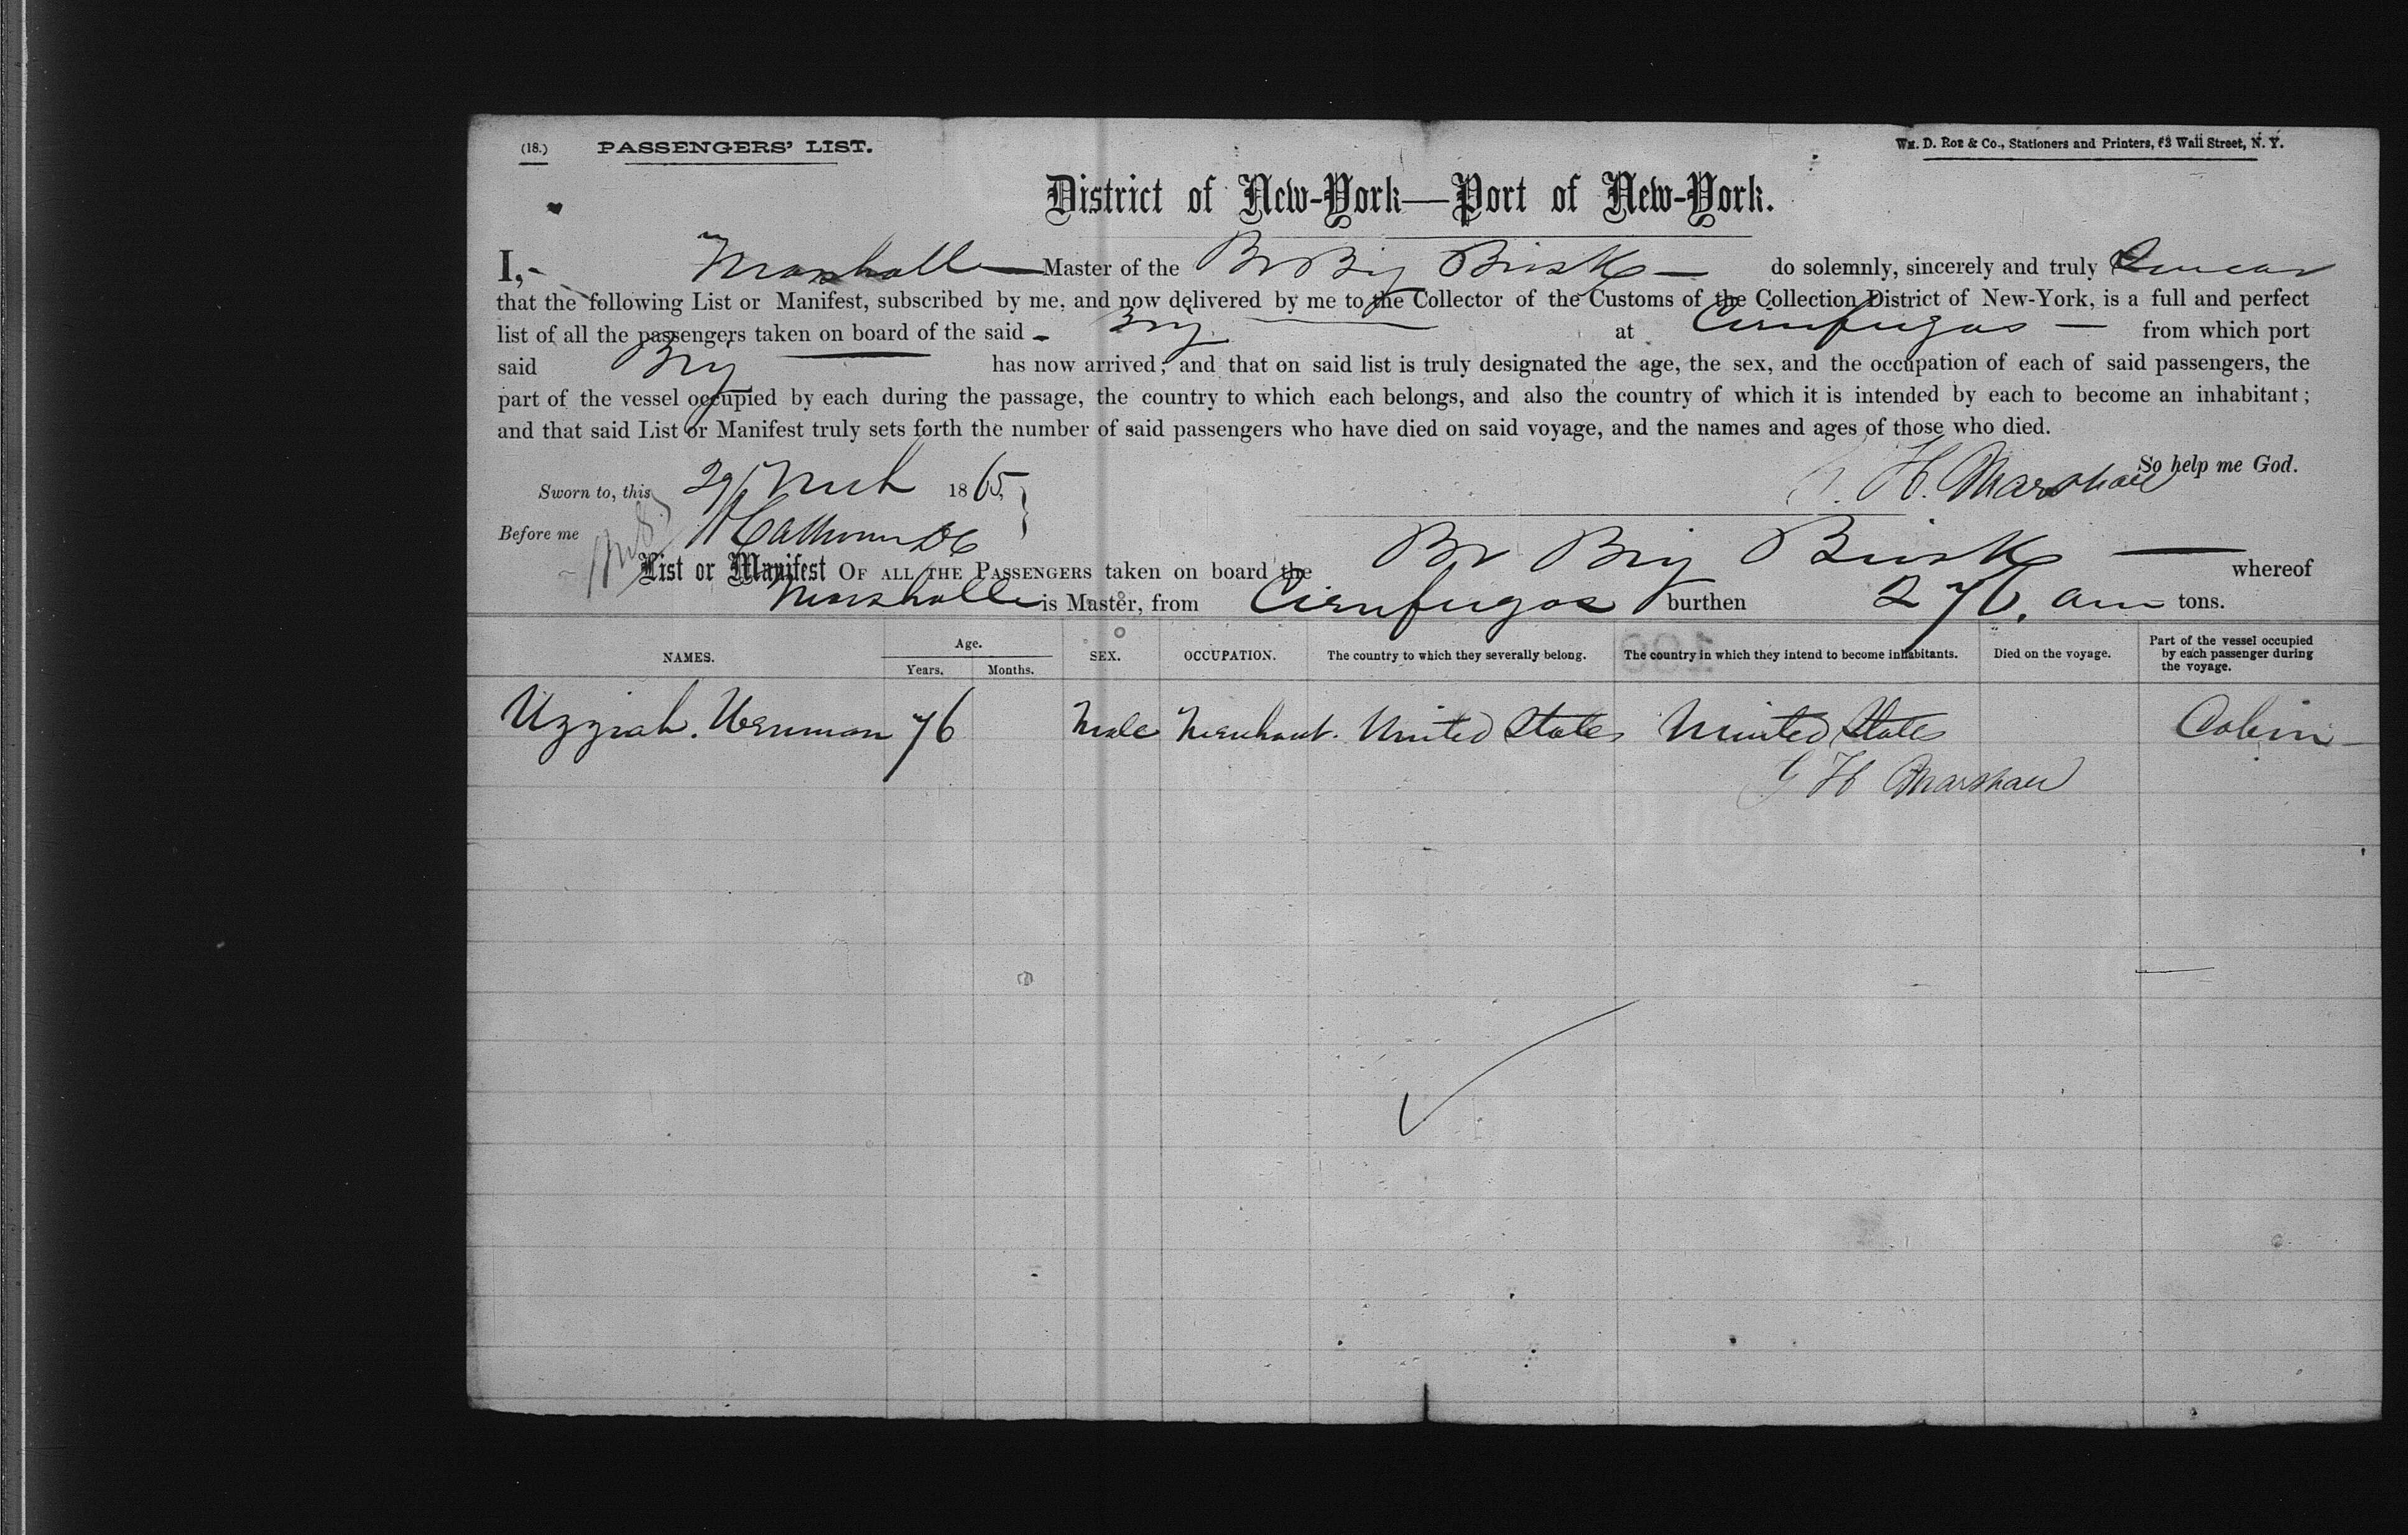 (18.) PASSENGERS' LIST. Wm. D. Roe & Co., Stationers and Printers, 63 Wall Street, N. Y.
District of New-York—Port of New-York.
I, Marshall Master of the Br Brig Brisk do solemnly, sincerely and truly Swear
that the following List or Manifest, subscribed by me, and now delivered by me to the Collector of the Customs of the Collection District of New-York, is a full and perfect
list of all the passengers taken on board of the said Brig at Cienfugos from which port
said Brig has now arrived; and that on said list is truly designated the age, the sex, and the occupation of each of said passengers, the
part of the vessel occupied by each during the passage, the country to which each belongs, and also the country of which it is intended by each to become an inhabitant;
and that said List or Manifest truly sets forth the number of said passengers who have died on said voyage, and the names and ages of those who died.
So help me God.
Sworn to, this 29 Mch 1865, H. Marshall
Before me Calhoun DC
List or Manifest OF ALL THE PASSENGERS taken on board the Br Brig Brisk whereof
Marshall is Master, from Cienfugos burthen 276. tons.
NAMES. Age. Years. Months. SEX. OCCUPATION. The country to which they severally belong. The country in which they intend to become inhabitants. Died on the voyage. Part of the vessel occupied by each passenger during the voyage.
Uzziah 76 Male Merchant. United States United States Cabin
H Marshall